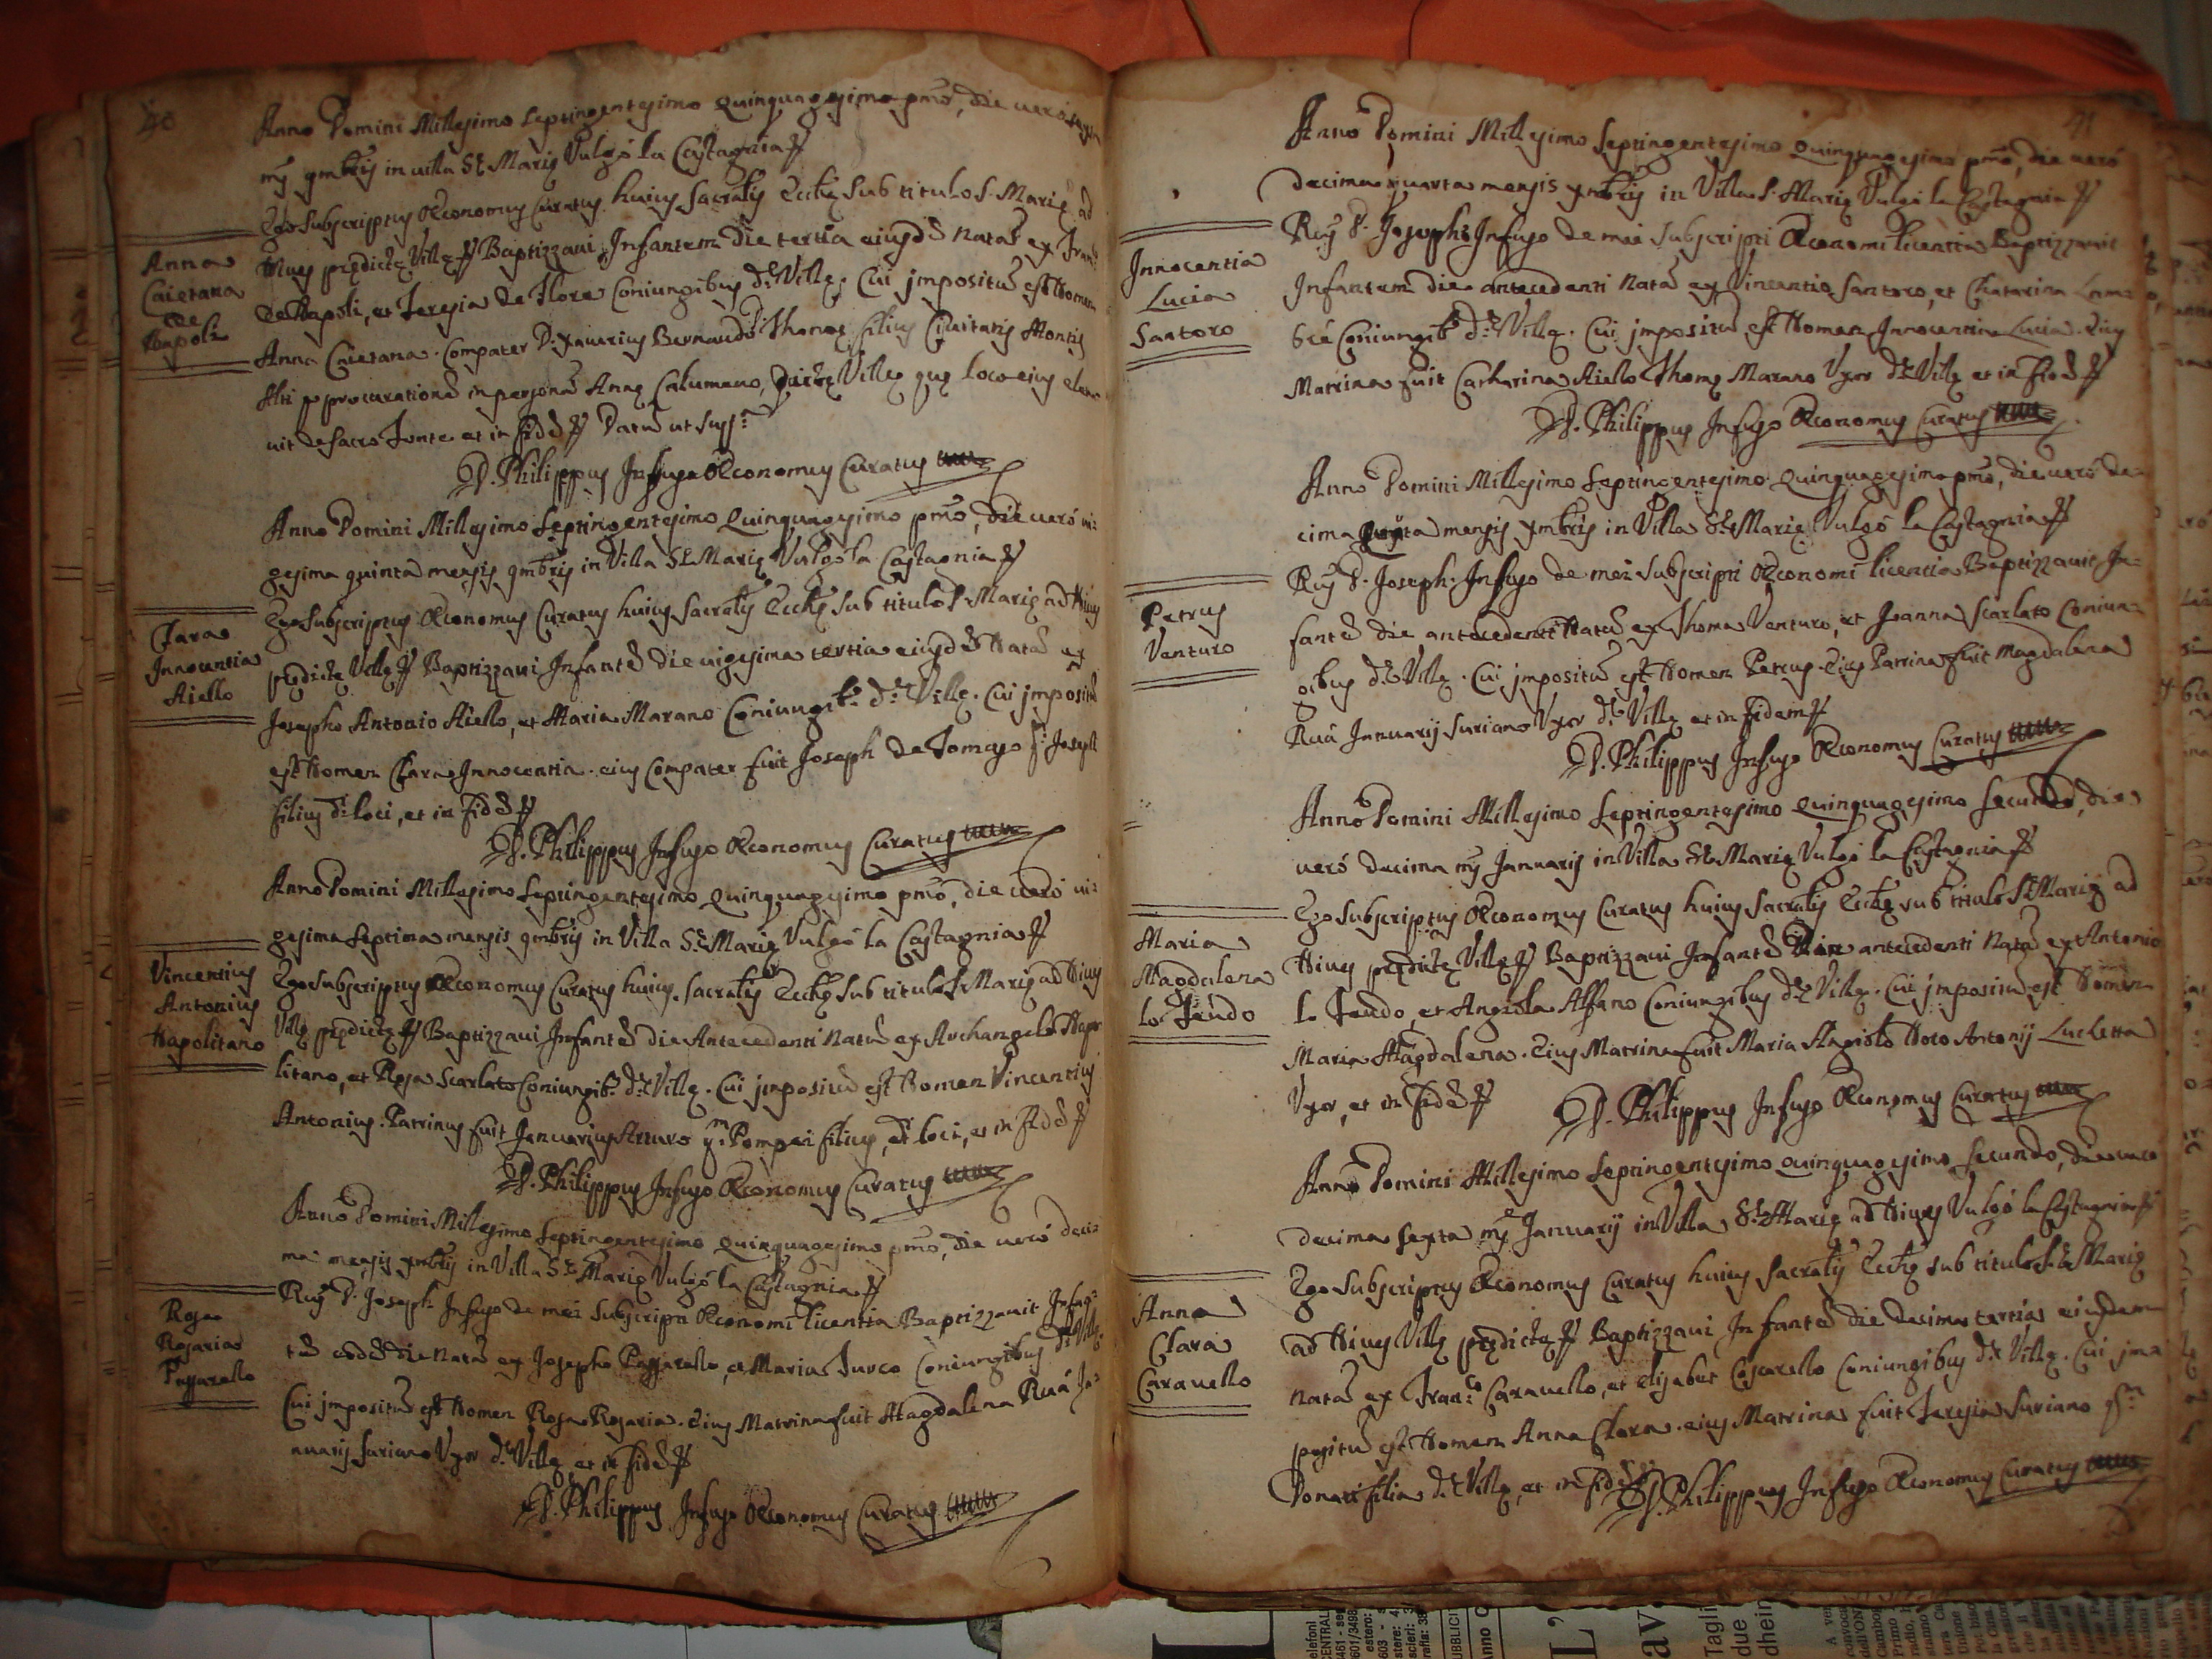 40
Anno Domini Millesimo Septingentesimo Quinquagesimo pmo, die vero
ms 9mbris in villa Stæ Mariæ Vulgò la Castagnia
Ego Subscriptus Œconomus Curatus huius Sacralis Eccłæ sub titulo S. Mariæ ad
Nives prædictæ Villæ Baptizzavi Infantem die tertia eiusdē Natā ex Fran:
de Napoli, et Teresia de Flore Coniungibus dæ Villæ. Cui impositū est Nomen
Anna Caietana. Compater D. Xaverius Bernaudo Dñi Thomæ filius Civitatis Montis
Alti p procurationē in personā Annæ Calumano, dictæ Villæ quæ loco eius eleva
uit de Sacro Fonte et in fidē Datū ut supra
D. Philippus Infuso Œconomus Curatus
Anna
Caietana
de
Napoli
Anno Domini Millesimo Septingentesimo Quinquagesimo pmo, die verò vi:
gesima quinta mensis 9mbris in Villa Stæ Mariæ Vulgò la Castagnia
Ego Subscriptus Œconomus Curatus huius Sacralis Eccłæ sub titulo S. Mariæ ad Nives
prædictæ Villæ Baptizzavi Infantē die vigesima tertia eiusdē Natā ex
Josepho Antonio Aiello, et Maria Marano Coniungibs dæ Villæ. Cui impositū
est Nomen Clara Innocentia. eius Compater fuit Joseph de Tomaso Joseph
filius di loci, et in fidē
D. Philippus Infuso Œconomus Curatus
Clara
Innocentia
Aiello
Anno Domini Millesimo Septingentesimo Quinquagesimo pmo, die verò vi:
gesima septima mensis 9mbris in Villa Stæ Mariæ Vulgò la Castagnia
Ego Subscriptus Œconomus Curatus huius Sacralis Eccłæ sub titulo S. Mariæ ad Nives
Villæ prædictæ Baptizzavi Infantē die Antecedenti Natū ex Archangelo Napo
litano, et Rosa Scarlato Coniungibs dæ Villæ. Cui impositū est Nomen Vincentius
Antonius. Patrinus fuit Januarius Arturo qm Pompei filius, di loci, et in fidē
D. Philippus Infuso Œconomus Curatus
Vincentius
Antonius
Napolitano
Anno Domini Millesimo Septingentesimo Quinquagesimo pmo, die verò deci:
ma mensis xmbris in Villa Stæ Mariæ Vulgò la Castagnia
Rus D. Joseph Infuso de mei Subscripti Œconomi licentia Baptizzavit Infan:
tē eādē die Natā ex Josepho Passarello, et Maria Turco Coniungibus dæ Villæ.
Cui impositū est Nomen Rosa Rosaria. Eius Matrina fuit Magdalena Ruà Ja:
nuarij Suriano Uxor dæ Villæ, et in fidē
D. Philippus Infuso Œconomus Curatus
Rosa
Rosaria
Passarello
41
Anno Domini Millesimo Septingentesimo Quinquagesimo pmo, die verò
decima quarta mensis xmbris in Villa S. Mariæ Vulgò la Castagnia
Rus D. Joseph Infuso de mei Subscripti Œconomi licentia Baptizzavit
Infantem die antecedenti Natā ex Vincentio Santoro, et Chatarina
Coniungibs dæ Villæ. Cui impositū est Nomen Innocentia Lucia. Eius
Matrina fuit Catharina Aiello Thomæ Marano Uxor dæ Villæ et in fidē
D. Philippus Infuso Œconomus Curatus
Innocentia
Lucia
Santoro
Anno Domini Millesimo Septingentesimo Quinquagesimo pmo, die verò de:
cima mensis xmbris in Villa Stæ Mariæ Vulgò la Castagnia
Rus D. Joseph Infuso de mei Subscripti Œconomi licentia Baptizzavit In:
fantē die antecedenti Natū ex Thoma Venturo, et Joanna Scarlato Coniun:
gibus dæ Villæ. Cui impositū est Nomen Petrus. Eius Patrina fuit Magdalena
Ruà Januarij Suriano Uxor dæ Villæ et in fidem
D. Philippus Infuso Œconomus Curatus
Petrus
Venturo
Anno Domini Millesimo Septingentesimo Quinquagesimo Secundo, die
verò decima ms Januarij in Villa Stæ Mariæ Vulgò la Castagnia
Ego Subscriptus Œconomus Curatus huius Sacralis Eccłæ sub titulo Stæ Mariæ ad
Nives prædictæ Villæ Baptizzavi Infantē Die antecedenti Natā ex Antonio
lo Feudo, et Angiola Alfano Coniungibus dæ Villæ. Cui impositū est Nomen
Maria Magdalena. Eius Matrina fuit Maria Angiola Noto Antonij Luchetta
Uxor, et in fidē
D. Philippus Infuso Œconomus Curatus
Maria
Magdalena
lo Feudo
Anno Domini Millesimo Septingentesimo Quinquagesimo Secundo, die vero
decima sexta ms Januarij in Villa Stæ Mariæ ad Nives Vulgò la Castagnia
Ego Subscriptus Œconomus Curatus huius Sacralis Eccłæ sub titulo Stæ Mariæ
ad Nives Villæ prædictæ Baptizzavi Infantē die decima tertia eiusdem
Natā ex Franco Caravello, et Elisabet Coscarello Coniungibus dæ Villæ. Cui im
positū est Nomen Anna Clara. eius Matrina fuit Teresia Suriano qm
Donati filia dæ Villæ, et in fidē D. Philippus Infuso Œconomus Curatus
Anna
Clara
Caravello
L'
av
Tagli
due
dhein